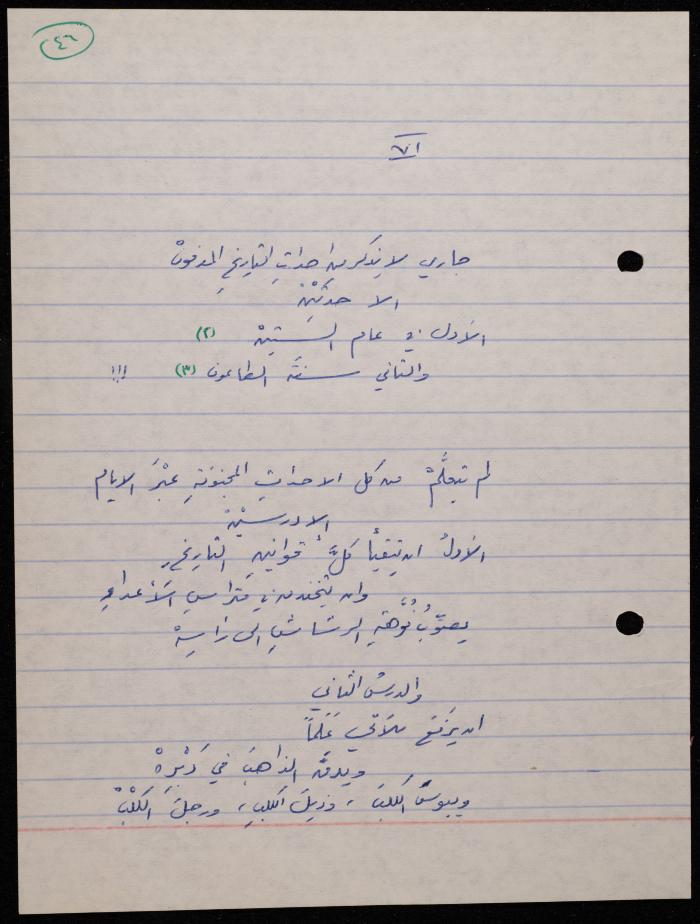 ٤٦
VI
جاري لا يذكر من احداثِ التاريخِ المدفونْ
الا حدثَيْنْ
الأول في عام الستينْ (٢)
والثاني سنةَ الطاعون (٣) !!!
لم يتعلَّمْ من كل الاحداثِ المجنونةِ عبْرَ الايام
الا درسيْنْ
الأولُ ان يتقيأَ كلَّ قوانينِ التاريخِ
وان يتخندق في متراسِ الأعداءِ
يصوِّبُ فُوَّهةِ الرشاشِ الى رأسِهْ
والدرسُ الثاني
ان يرفع عَلَماً
ويدقَّ الذاهبَ في دُبْرِهْ
ويبوسَ الكلبَ ، وذيلَ الكلبِ ، ورجلَ الكلْبْ